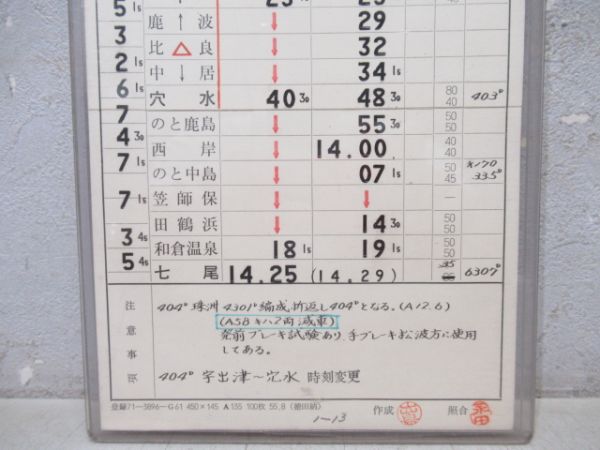 5 1s 25 25
鹿 ↑ 波 ↓ 29
3
比 △ 良 ↓ 32
2 1s
中 ↓ 居 ↓ 34 1s
6 1s
穴 水 40 30 48 30 80 40 403D
7
のと鹿島 ↓ 55 30 50 50
4 30
西 岸 ↓ 14.00 40 40
7 1s
のと中島 ↓ 07 1s 50 45 キハ70 335D
7 1s
笠師保 ↓ ↓ —
田鶴浜 ↓ 14 30 50 50
3 4s
和倉温泉 18 1s 19 1s 50 50
5 4s
七 尾 14.25 (14.29) 35 6307D
注意事項
404D 珠洲 4301D編成、折返し404Dとなる。(A12.6)
(A58 キハ2両 減車)
発前ブレーキ試験あり、手ブレーキ松波方に使用
してある。
404D 宇出津〜穴水 時刻変更
登録71—3896—G61 450×145 A135 100枚 55.8 (徳田納)
1-13
作成 照合 永田